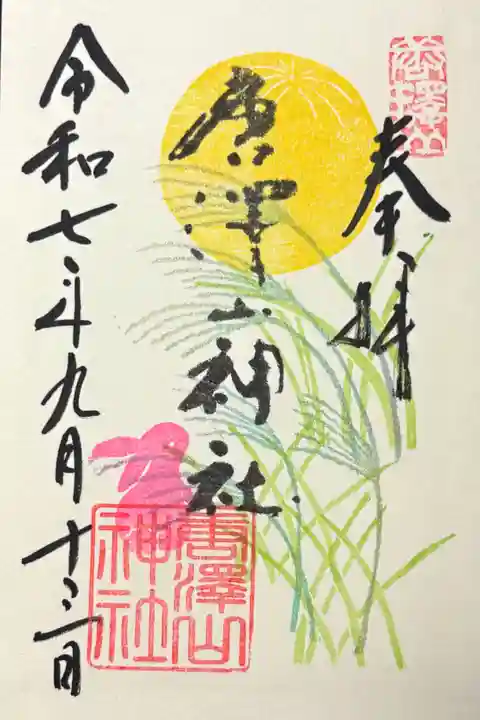 奉拝
唐澤山神社
唐澤山神社
令和七年九月十三日